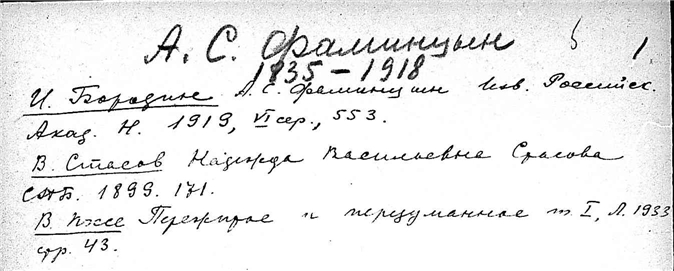 А. С. Фаминцын 1.
1835 – 1918
И. Бородин А. С. Фаминцын Изв. Российск.
Акад. Н. 1919, VI сер., 553.
В. Стасов Надежда Васильевна Стасова
СПБ. 1899. 171.
В. Пуссе Пережитое и передуманное т I, Л. 1933
стр. 43.